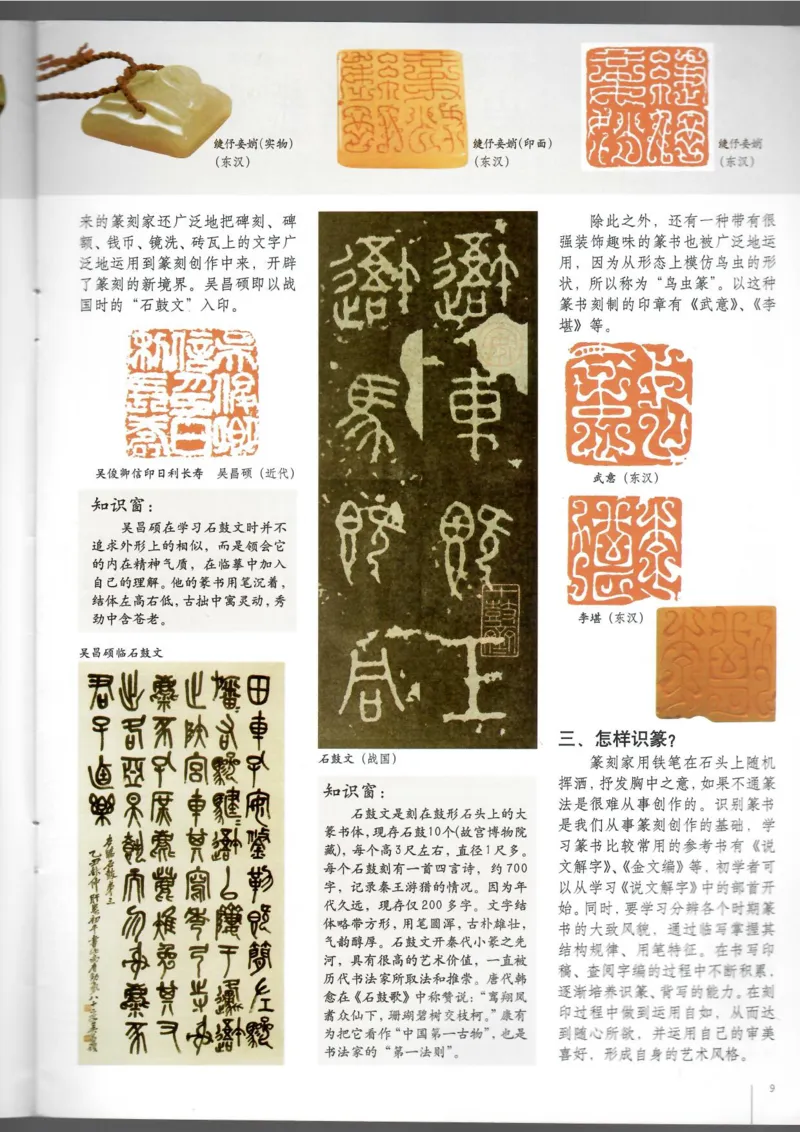 緁伃妾娋(实物)
(东汉)
緁伃妾娋(印面)
(东汉)
緁伃妾娋
(东汉)
来的篆刻家还广泛地把碑刻、碑
额、钱币、镜洗、砖瓦上的文字广
泛地运用到篆刻创作中来，开辟
了篆刻的新境界。吴昌硕即以战
国时的“石鼓文”入印。
吴俊卿信印日利长寿 吴昌硕（近代）
知识窗：
吴昌硕在学习石鼓文时并不
追求外形上的相似，而是领会它
的内在精神气质，在临摹中加入
自己的理解。他的篆书用笔沉着，
结体左高右低，古拙中寓灵动，秀
劲中含苍老。
吴昌硕临石鼓文
石鼓文（战国）
知识窗：
石鼓文是刻在鼓形石头上的大
篆书体，现存石鼓10个(故宫博物院
藏)，每个高3尺左右，直径1尺多。
每个石鼓刻有一首四言诗，约700
字，记录秦王游猎的情况。因为年
代久远，现存仅200多字。文字结
体略带方形，用笔圆浑，古朴雄壮，
气韵醇厚。石鼓文开秦代小篆之先
河，具有很高的艺术价值，一直被
历代书法家所取法和推崇。唐代韩
愈在《石鼓歌》中称赞说：“鸾翔凤
翥众仙下，珊瑚碧树交枝柯。”康有
为把它看作“中国第一古物”，也是
书法家的“第一法则”。
除此之外，还有一种带有很
强装饰趣味的篆书也被广泛地运
用，因为从形态上模仿鸟虫的形
状，所以称为“鸟虫篆”。以这种
篆书刻制的印章有《武意》、《李
堪》等。
武意（东汉）
李堪（东汉）
三、怎样识篆？
篆刻家用铁笔在石头上随机
挥洒，抒发胸中之意，如果不通篆
法是很难从事创作的。识别篆书
是我们从事篆刻创作的基础，学
习篆书比较常用的参考书有《说
文解字》、《金文编》等，初学者可
以从学习《说文解字》中的部首开
始。同时，要学习分辨各个时期篆
书的大致风貌，通过临写掌握其
结构规律、用笔特征。在书写印
稿、查阅字编的过程中不断积累，
逐渐培养识篆、背写的能力。在刻
印过程中做到运用自如，从而达
到随心所欲，并运用自己的审美
喜好，形成自身的艺术风格。
9